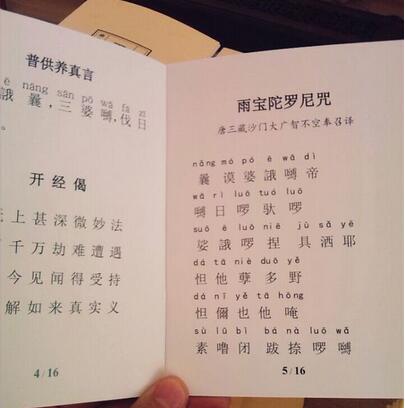 普供养真言
ē nāng sān pó wā fá zì
誐 曩，三 婆 嚩，伐 日
。
开 经 偈
上 甚 深 微 妙 法
千 万 劫 难 遭 遇
今 见 闻 得 受 持
解 如 来 真 实 义
4/16
雨宝陀罗尼咒
唐三藏沙门大广智不空奉召译
nǎng mó pó ē wā dì
曩 谟 婆 誐 嚩 帝
wā rì luō tuó luō
嚩 日 啰 驮 啰
suō ē luō niē jù sǎ yē
娑 誐 啰 捏 具 洒 耶
dá tā niè duō yě
怛 他 孽 多 野
dá nǐ yě tā hōng
怛 儞 也 他 唵
sù lū bì bá nà luō wā
素 噜 闭 跋 捺 啰 嚩
5/16